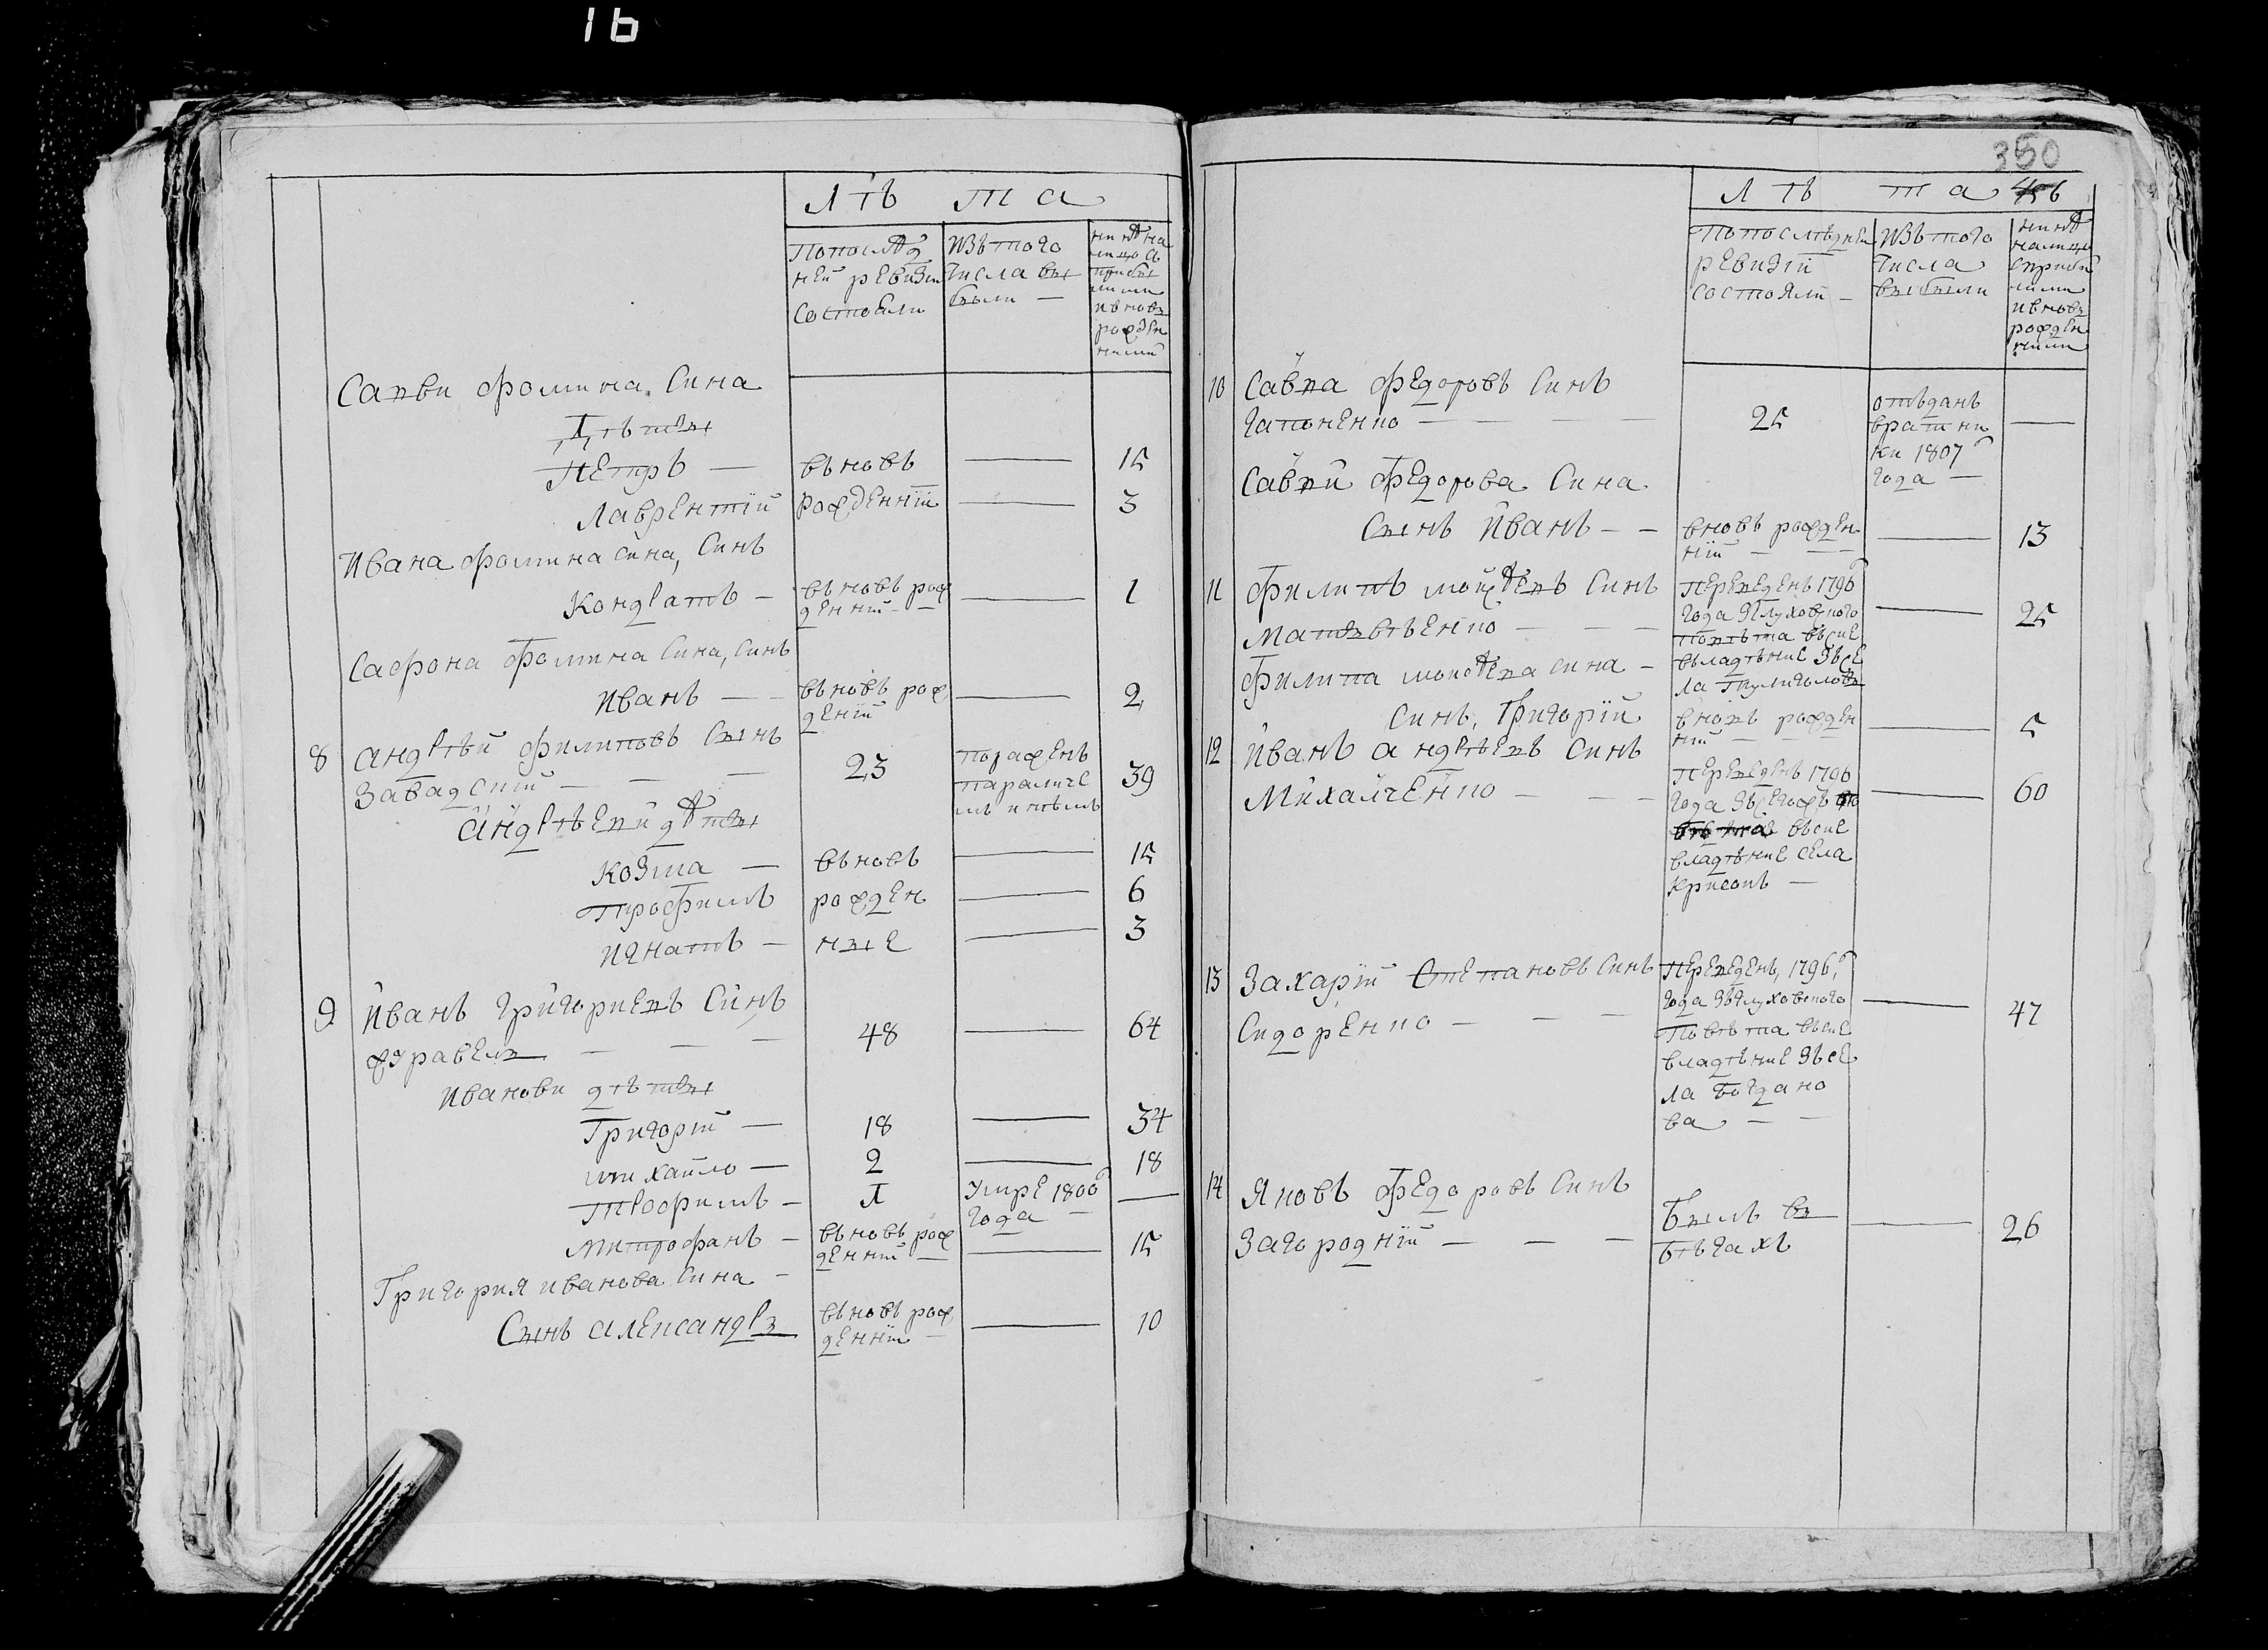 16
Лѣта
Попослѣд
ней ревизіи
состояли
Изътого
числа вы
были —
нинѣ на
лицо съ
прибы
лими
ивновь
рожден
ними
Савки Фомина Сина
Дѣты
Петръ — вьновъ — 15
Лаврентій рожденній — 3
Ивана Фомина Сина, Синъ
Кондратъ — вьновъ рож
денній — — 1
Сафрона Фомина Сина, Синъ
Иванъ — — вьновъ рож
деній — 2
8 Андрѣй Филиповъ Сынъ
Завадскій — — — 23 пораженъ
параличе
мъ имѣмъ 39
Андрѣеви дѣты
Козма — вьновъ — 15
Трофимъ рожден — 6
Игнатъ — ные — 3
9 Иванъ Григориевъ Синъ
Журавель — — — 48 — 64
Иванови дѣты
Григорій — 18 — 34
Михайло — 2 — 18
Трофимъ — 1 умре 1800
года — —
Митрофанъ — вьновъ рож
денній — — 15
Григория Иванова Сина —
Сынъ Александръ вьновъ рож
денній — — 10
350
Лѣта
Попослѣдней
ревизіи
состояли —
Изътого
числа
выбыли
нинѣ
налицо
сприбы
лими
ивновь
рожден
ними
10 Савка Федоровъ Синъ
Гапоненко — — — — 25 отъданъ
вратни
ки 1807
года — —
Савки Федорова Сина
Сынъ Иванъ — — вновъ рожден
ній — — — 13
11 Филипъ Мойсѣевъ Синъ
Матвѣенко — — — Переведенъ 1796
года зГлуховского
повѣта въсие
владѣние зъсе
ла — 25
Филипа Моисѣева Сина —
Синъ, Григорій вновъ рожден
ній — — — 5
12 Иванъ Андрѣевъ Синъ
Михайченко — — — Переведенъ 1796
года въсие
владѣние села
— 60
13 Захарій Степановъ Синъ
Сидоренко — — — Переведенъ, 1796,
года зъГлуховского
Повѣта въсие
владѣние зъсе
ла Богдано
ва — — — 47
14 Яковъ Федоровъ Синъ
Загородній — — — Былъ въ
бѣгахъ — 26